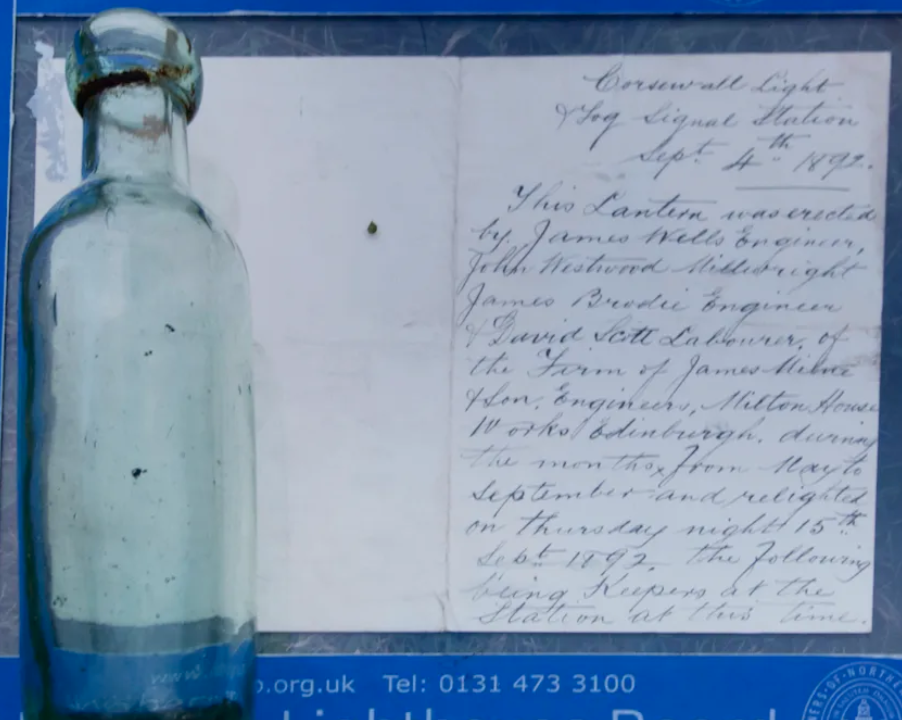 Corsewall Light
& Fog Signal Station
Sept 4th 1892.
This Lantern was erected
by James Wells Engineer,
John Westwood Millwright
James Brodie Engineer
& David Scott Labourer, of
the Firm of James Milne
& Son, Engineers, Milton House
Works Edinburgh. during
the months from May to
September and relighted
on thursday night 15th
Sept. 1892. the following
being Keepers at the
Station at this time.
.org.uk Tel: 0131 473 3100